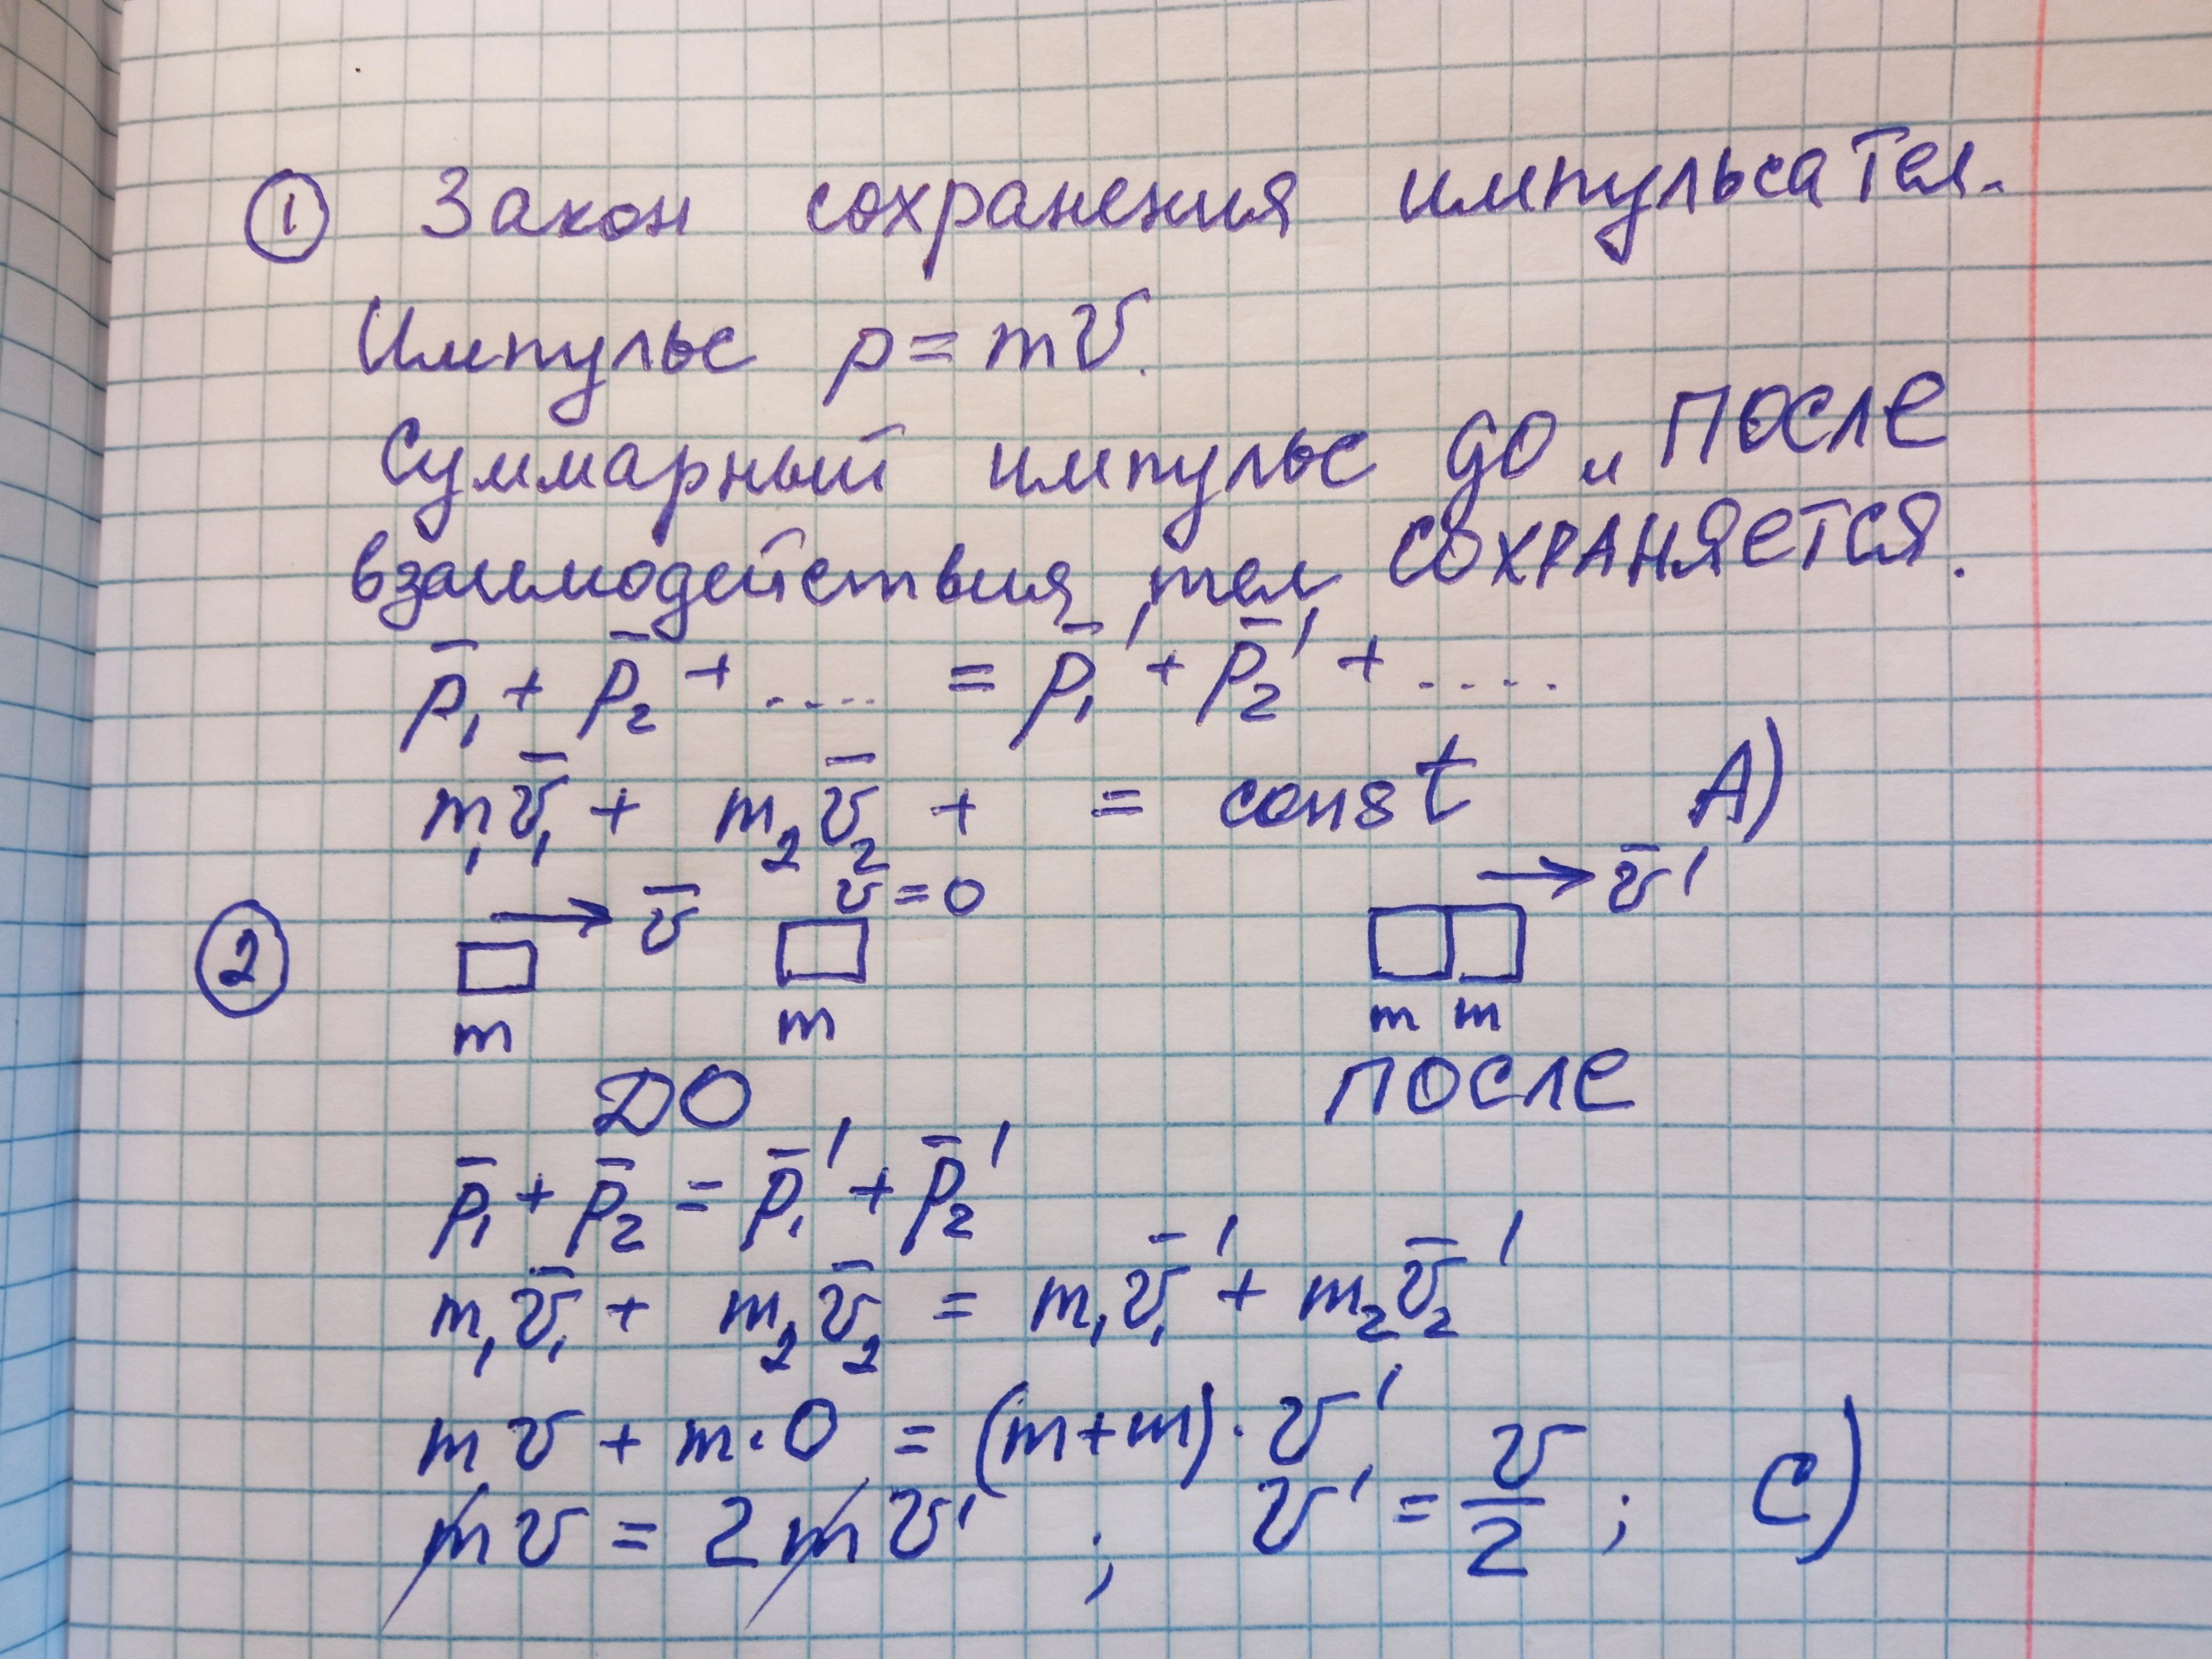 ① Закон сохранения импульса тел.
Импульс p = mv.
Суммарный импульс до и ПОСЛЕ
взаимодействия тел СОХРАНЯЕТСЯ.
p̄₁ + p̄₂ + .... = p̄₁' + p̄₂' + ....
m₁v̄₁ + m₂v̄₂ + = const A)
② v̄ v = 0 v̄'
m m m m
ДО ПОСЛЕ
p̄₁ + p̄₂ = p̄₁' + p̄₂'
m₁v̄₁ + m₂v̄₂ = m₁v̄₁' + m₂v̄₂'
mv + m·0 = (m+m)·v'
mv = 2mv' ; v' = v/2 ; C)